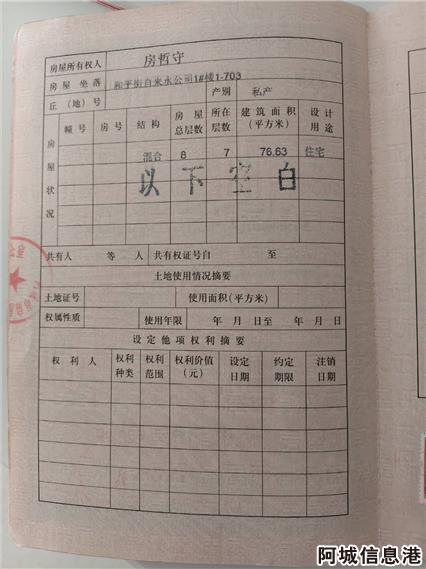 房屋所有权人 房哲守
房屋坐落 和平街自来水公司1#楼1-703
丘(地)号 产别 私产
房屋状况 幢号 房号 结构 房屋总层数 所在层数 建筑面积(平方米) 设计用途
混合 8 7 76.63 住宅
以下空白
共有人 等 人 共有权证号自 至
土地使用情况摘要
土地证号 使用面积(平方米)
权属性质 使用年限 年 月 日至 年 月 日
设定他项权利摘要
权利人 权利种类 权利范围 权利价值(元) 设定日期 约定期限 注销日期
阿城信息港